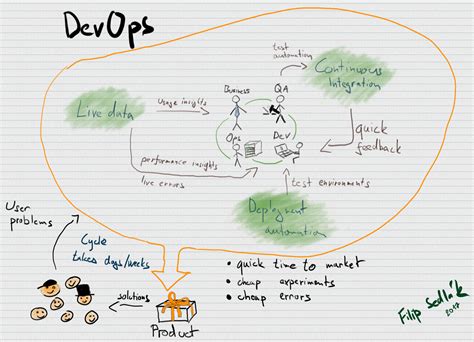 DevOps
test
automation
Continuous
Integration
Business
QA
Live data
Usage insights
Ops
Dev
quick
feedback
performance insights
live errors
test environments
Deployment
automation
User
problems
Cycle
takes days/weeks
• quick time to market
• cheap experiments
• cheap errors
solutions
Product
Filip Sedlák
2017